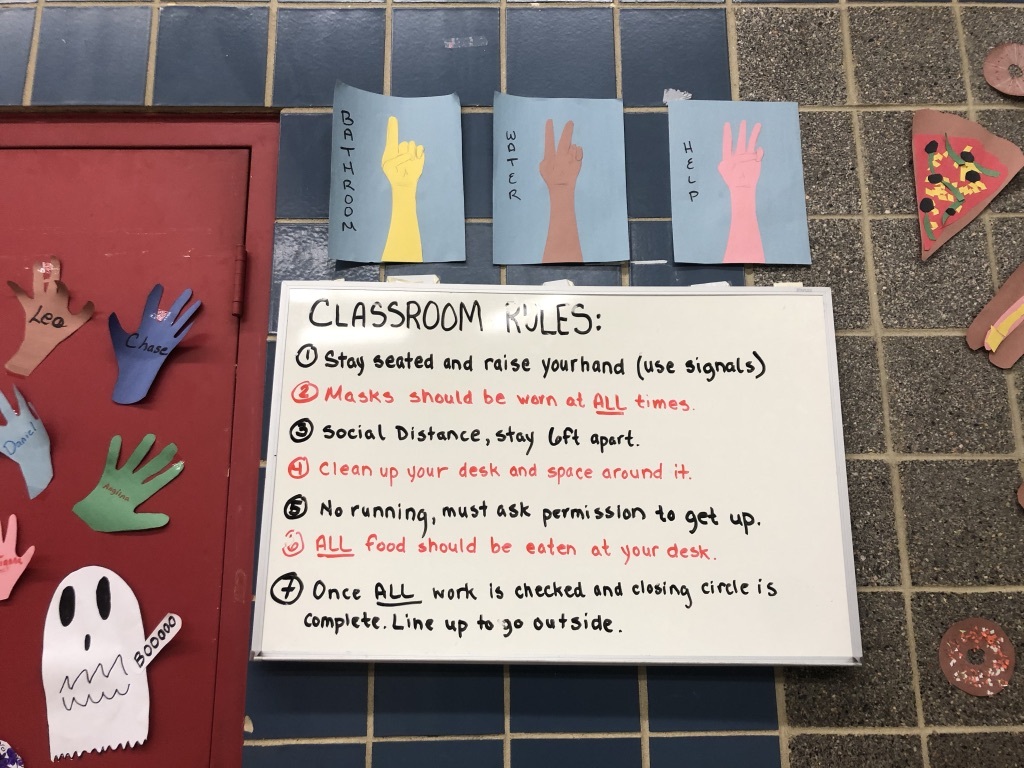 BATHROOM
WATER
HELP
CLASSROOM RULES:
① Stay seated and raise your hand (use signals)
② Masks should be worn at ALL times.
③ Social Distance, stay 6ft apart.
④ Clean up your desk and space around it.
⑤ No running, must ask permission to get up.
⑥ ALL food should be eaten at your desk.
⑦ Once ALL work is checked and closing circle is
complete. Line up to go outside.
Leo
Chase
Daniel
Angelina
BOOOOO